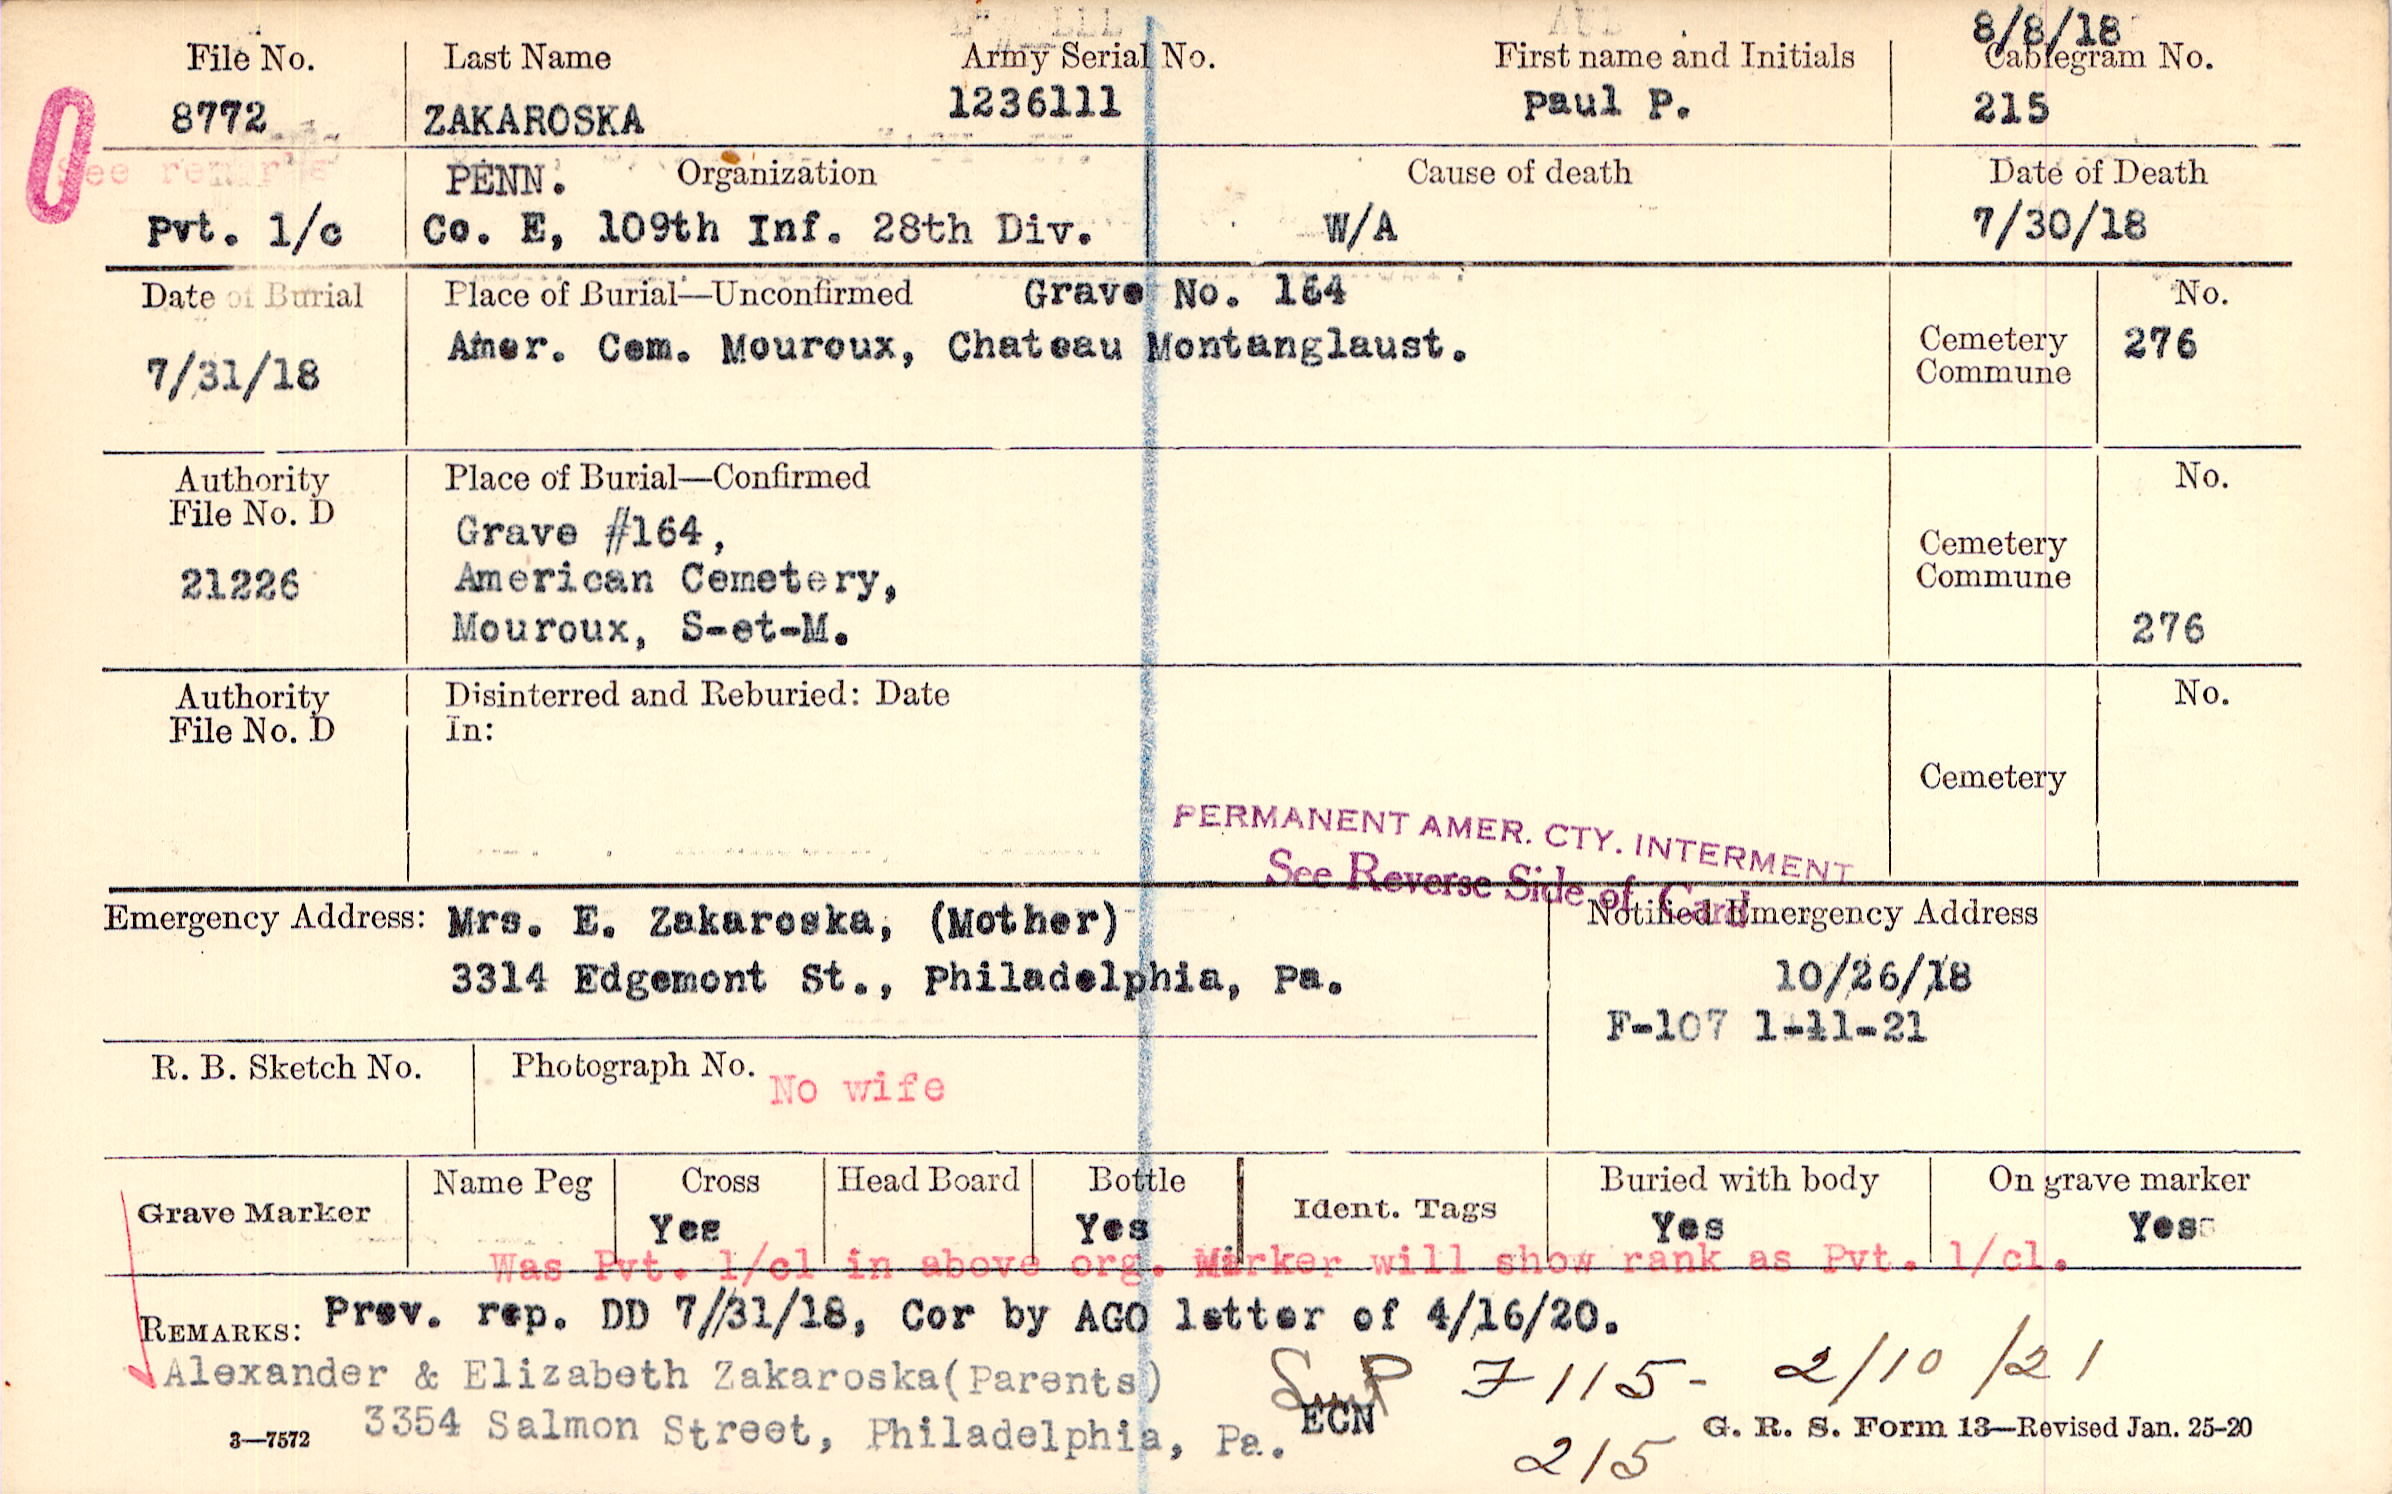 8/8/18
File No. Last Name Army Serial No. First name and Initials Cablegram No.
8772 ZAKAROSKA 1236111 Paul P. 215
See remarks
PENN. Organization Cause of death Date of Death
Pvt. 1/c Co. E, 109th Inf. 28th Div. W/A 7/30/18
Date of Burial Place of Burial—Unconfirmed Grave No. 164 No.
7/31/18 Amer. Cem. Mouroux, Chateau Montanglaust. Cemetery 276
Commune
Authority Place of Burial—Confirmed No.
File No. D Grave #164,
21226 American Cemetery, Cemetery
Commune
Mouroux, S-et-M. 276
Authority Disinterred and Reburied: Date No.
File No. D In:
Cemetery
PERMANENT AMER. CTY. INTERMENT
See Reverse Side of Card
Emergency Address: Mrs. E. Zakaroska, (Mother) Notified Emergency Address
3314 Edgemont St., Philadelphia, Pa. 10/26/18
F-107 1-11-21
R. B. Sketch No. Photograph No. No wife
Grave Marker Name Peg Cross Head Board Bottle Ident. Tags Buried with body On grave marker
Yes Yes Yes Yes
Was Pvt. 1/cl in above org. Marker will show rank as Pvt. 1/cl.
REMARKS: Prev. rep. DD 7//31/18, Cor by AGO letter of 4/16/20.
Alexander & Elizabeth Zakaroska(Parents) F 115- 2/10/21
3354 Salmon Street, Philadelphia, Pa. ECN
3—7572 G. R. S. Form 13—Revised Jan. 25-20
215